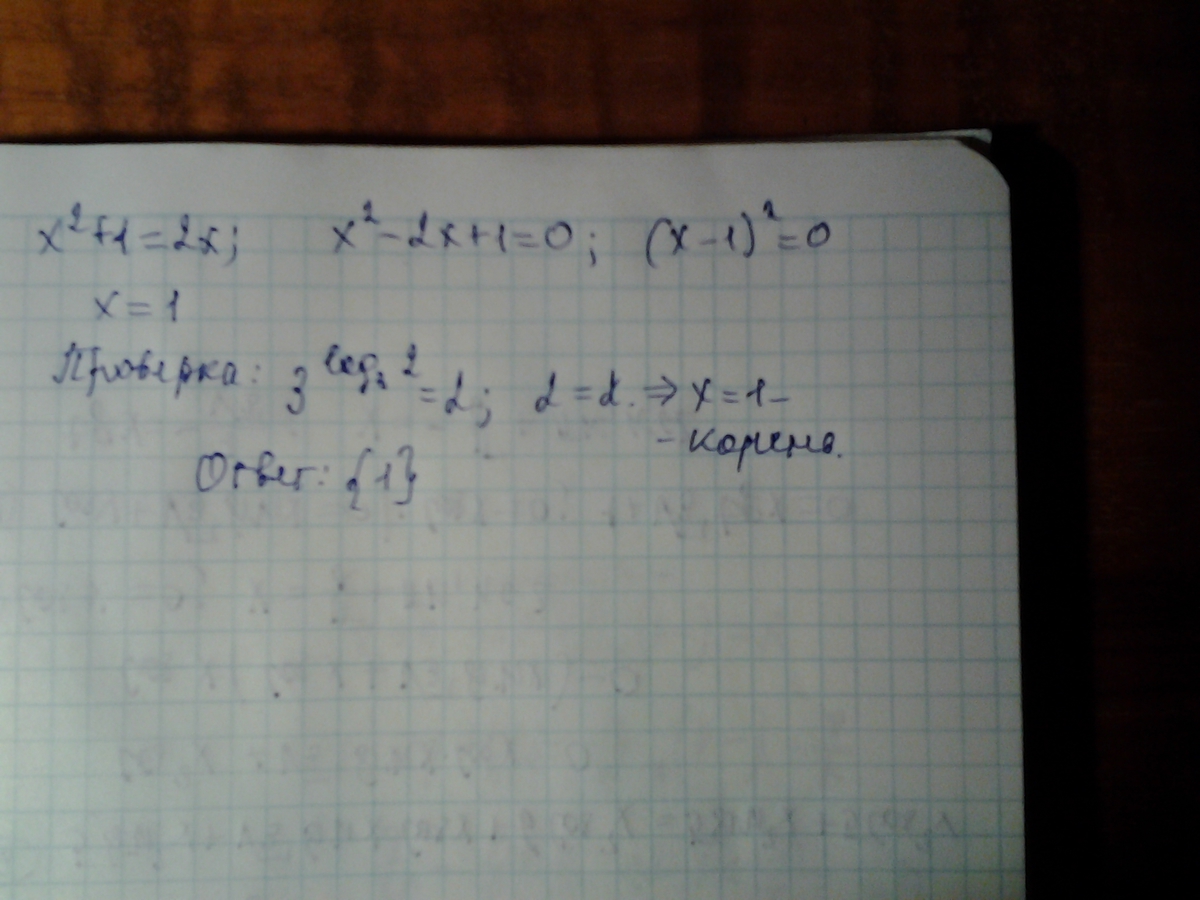 x²+1=2x; x²-2x+1=0; (x-1)²=0
x=1
Проверка: 3^log₃2=2; 2=2. ⇒ x=1-
- корень.
Ответ: {1}